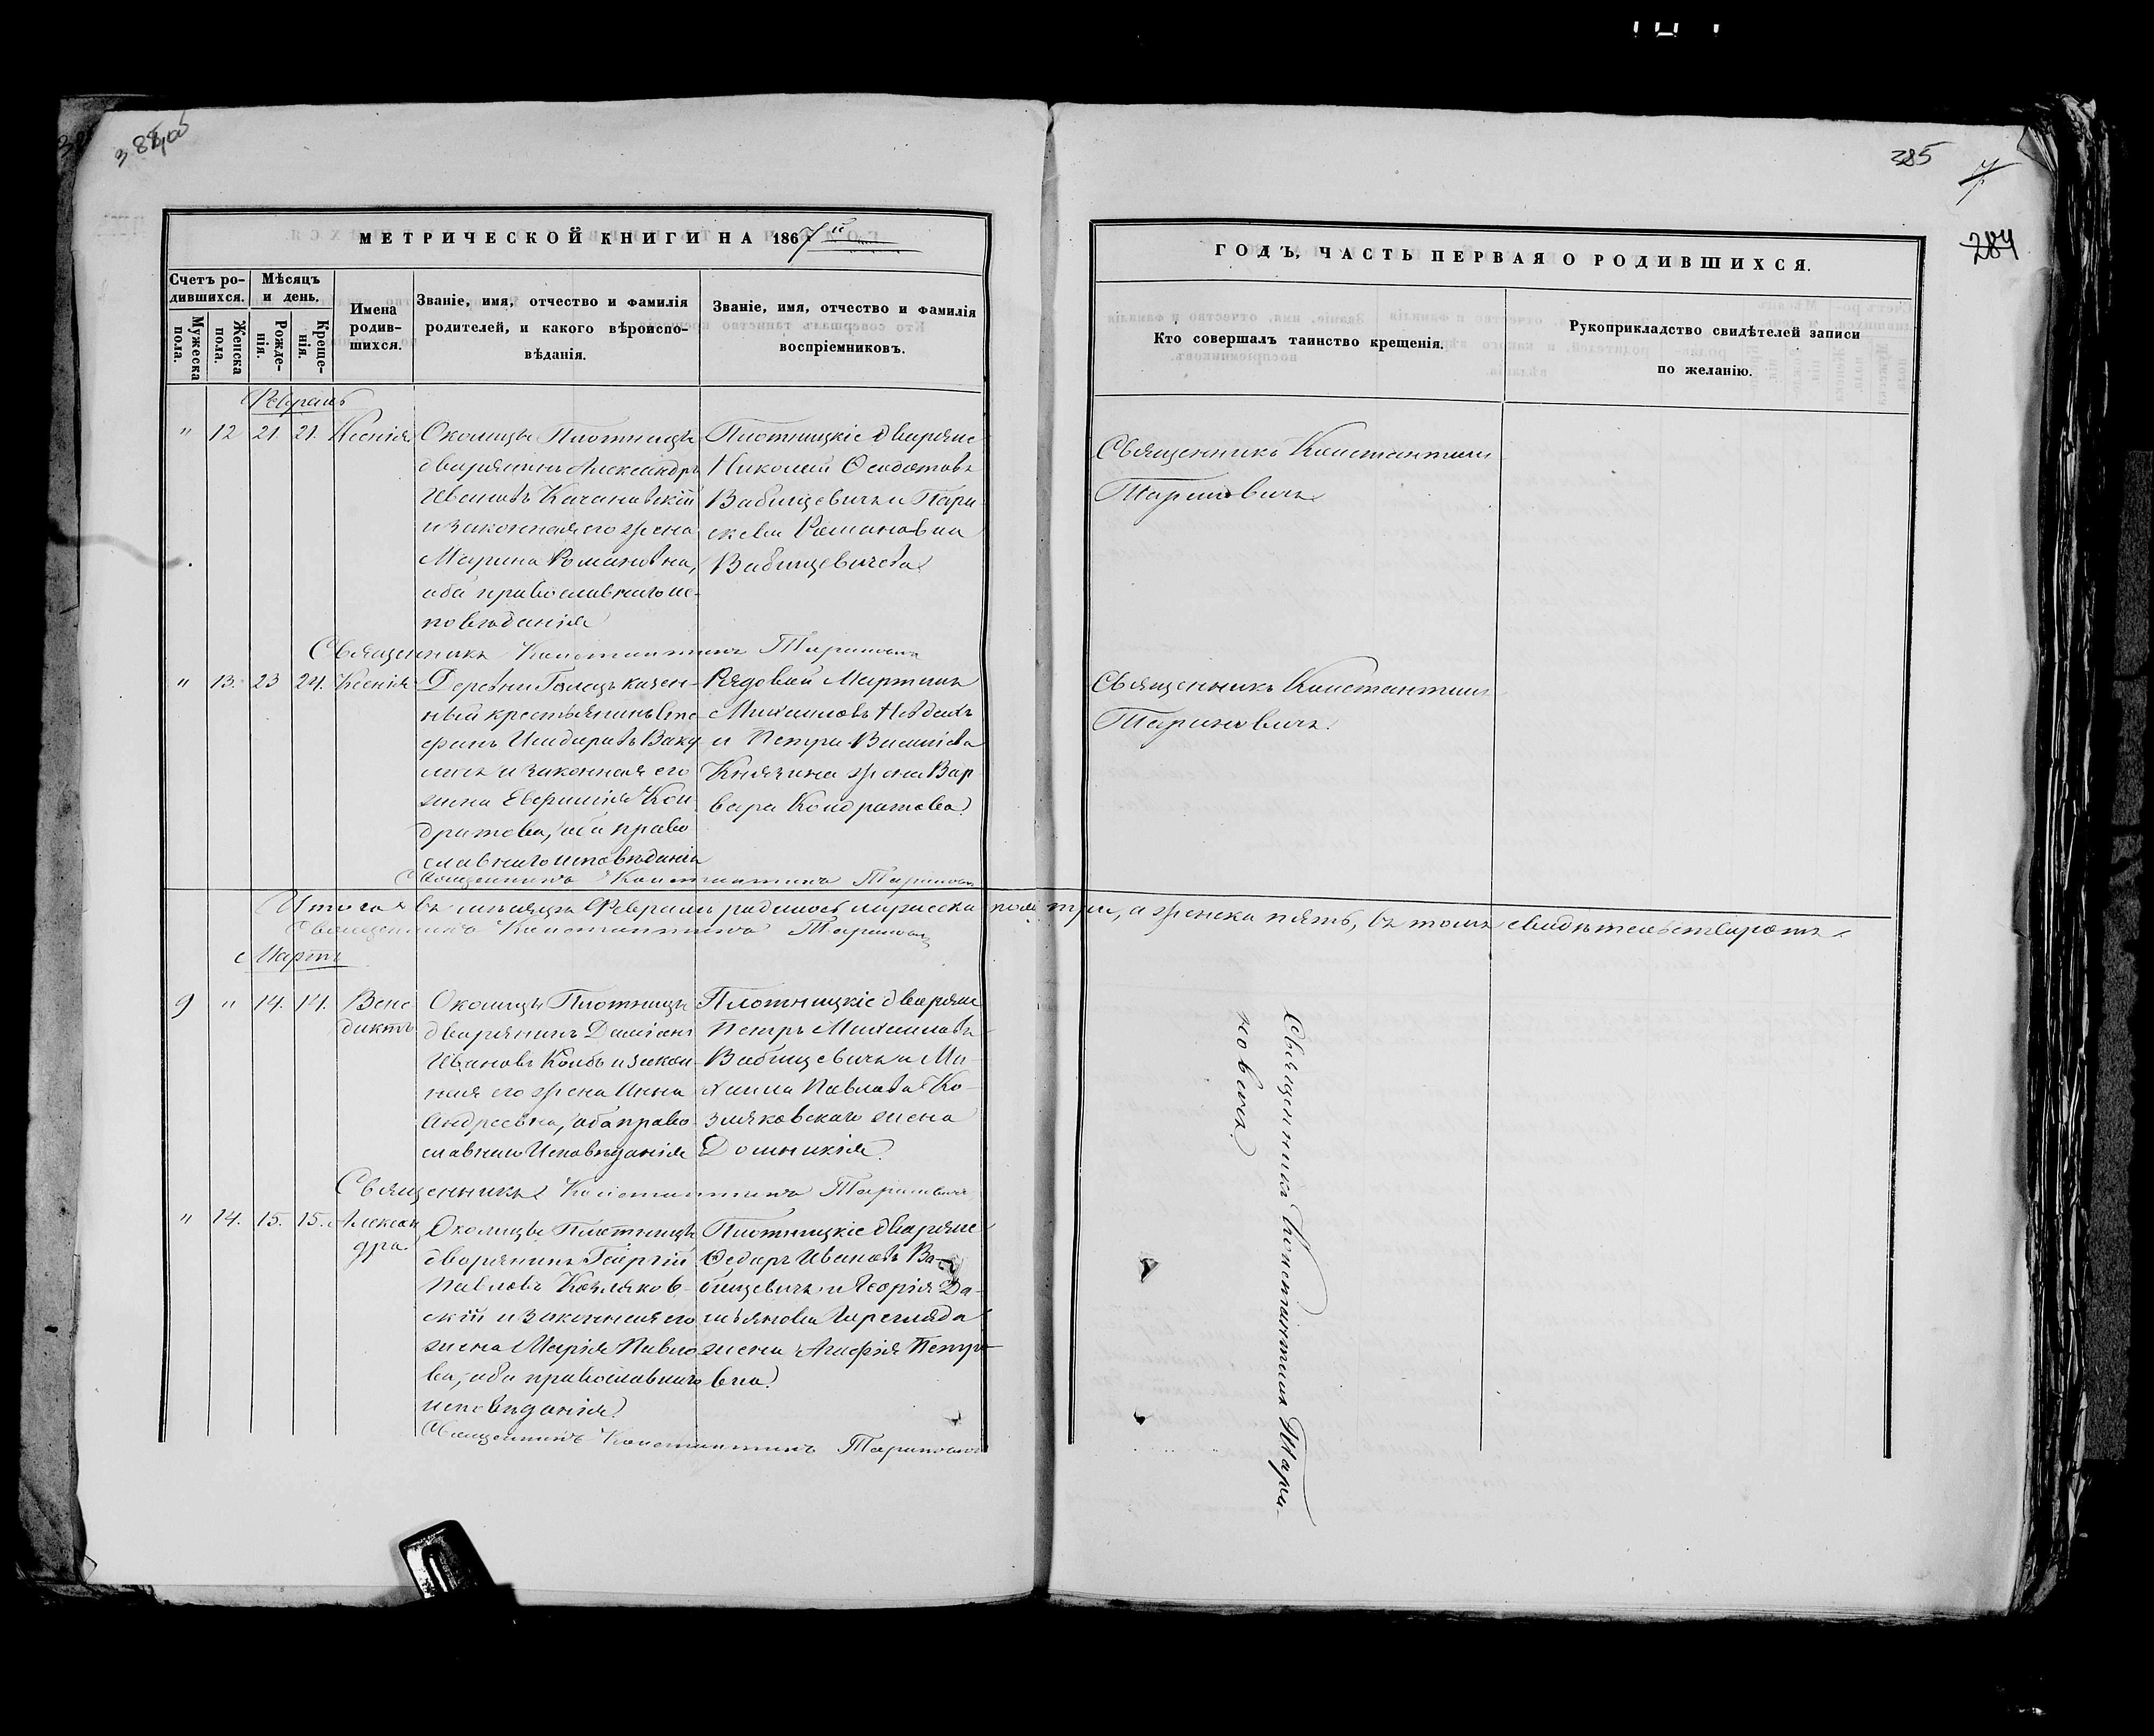 384об
385
7
284
МЕТРИЧЕСКОЙ КНИГИ НА 1867й
ГОДЪ, ЧАСТЬ ПЕРВАЯ О РОДИВШИХСЯ.
Счетъ ро-
дившихся.
Мужеска пола.
Женска пола.
Мѣсяцъ
и день.
Рожде-
нія.
Креще-
нія.
Имена
родив-
шихся.
Званіе, имя, отчество и фамилія
родителей, и какого вѣроиспо-
вѣданія.
Званіе, имя, отчество и фамилія
воспріемниковъ.
Кто совершалъ таинство крещенія.
Рукоприкладство свидѣтелей записи
по желанію.
Февраль
" 12 21 21. Ксенія
Околицы Плотницы
дворянинъ Александръ
Ивановъ Качановскій
и законная его жена
Марина Романовна,
оба православнаго ис-
повѣданія
Плотницкіе дворяне
Николай Ѳеодотовъ
Вабищевичъ и Пара-
скева Романовна
Вабищевичева
Священникъ Константинъ
Тариновичъ
Священникъ Константинъ Тариновичъ
" 13. 23 24. Ксенія
Деревни Голецъ казен-
ный крестьянинъ Сте-
фанъ Исидоровъ Ваку-
личъ и законная его
жена Евфимія Кон-
дратова, оба право
славнаго исповѣданія
Рядовой Мартинъ
Михаиловъ
и Петра Василіева
Князина жена Вар
вара Кондратова
Священникъ Константинъ
Тариновичъ.
Священникъ Константинъ Тариновичъ
Итого въ мѣсяцѣ Февралѣ родилось мужеска пола три, а женска пять, въ томъ свидѣтельствуютъ
Священникъ Константинъ Тариновичъ
Мартъ
9 " 14. 14. Вене
диктъ
Околицы Плотницы
дворянинъ Даміанъ
Ивановъ Колбъ и закон-
ная его жена Анна
Андреевна, оба право
славнаго Исповѣданія
Плотницкіе дворяне
Петръ Михаиловъ
Вабищевичъ и Ми-
хаила Павлова Ко-
зляковскаго жена
Домникія
Священникъ Константинъ Тари-
новичъ
Священникъ Константинъ Тариновичъ
" 14. 15. 15. Алексан
дра
Околицы Плотницы
дворянинъ Георгій
Павловъ Козляков-
скій и законная его
жена Марія Павло
ва, оба православнаго
исповѣданія
Плотницкіе дворяне
Ѳедоръ Ивановъ Ва-
бищевичъ и Георгія Да-
мьянова
жена Агафія Петро
вна.
Священникъ Константинъ Тариновичъ